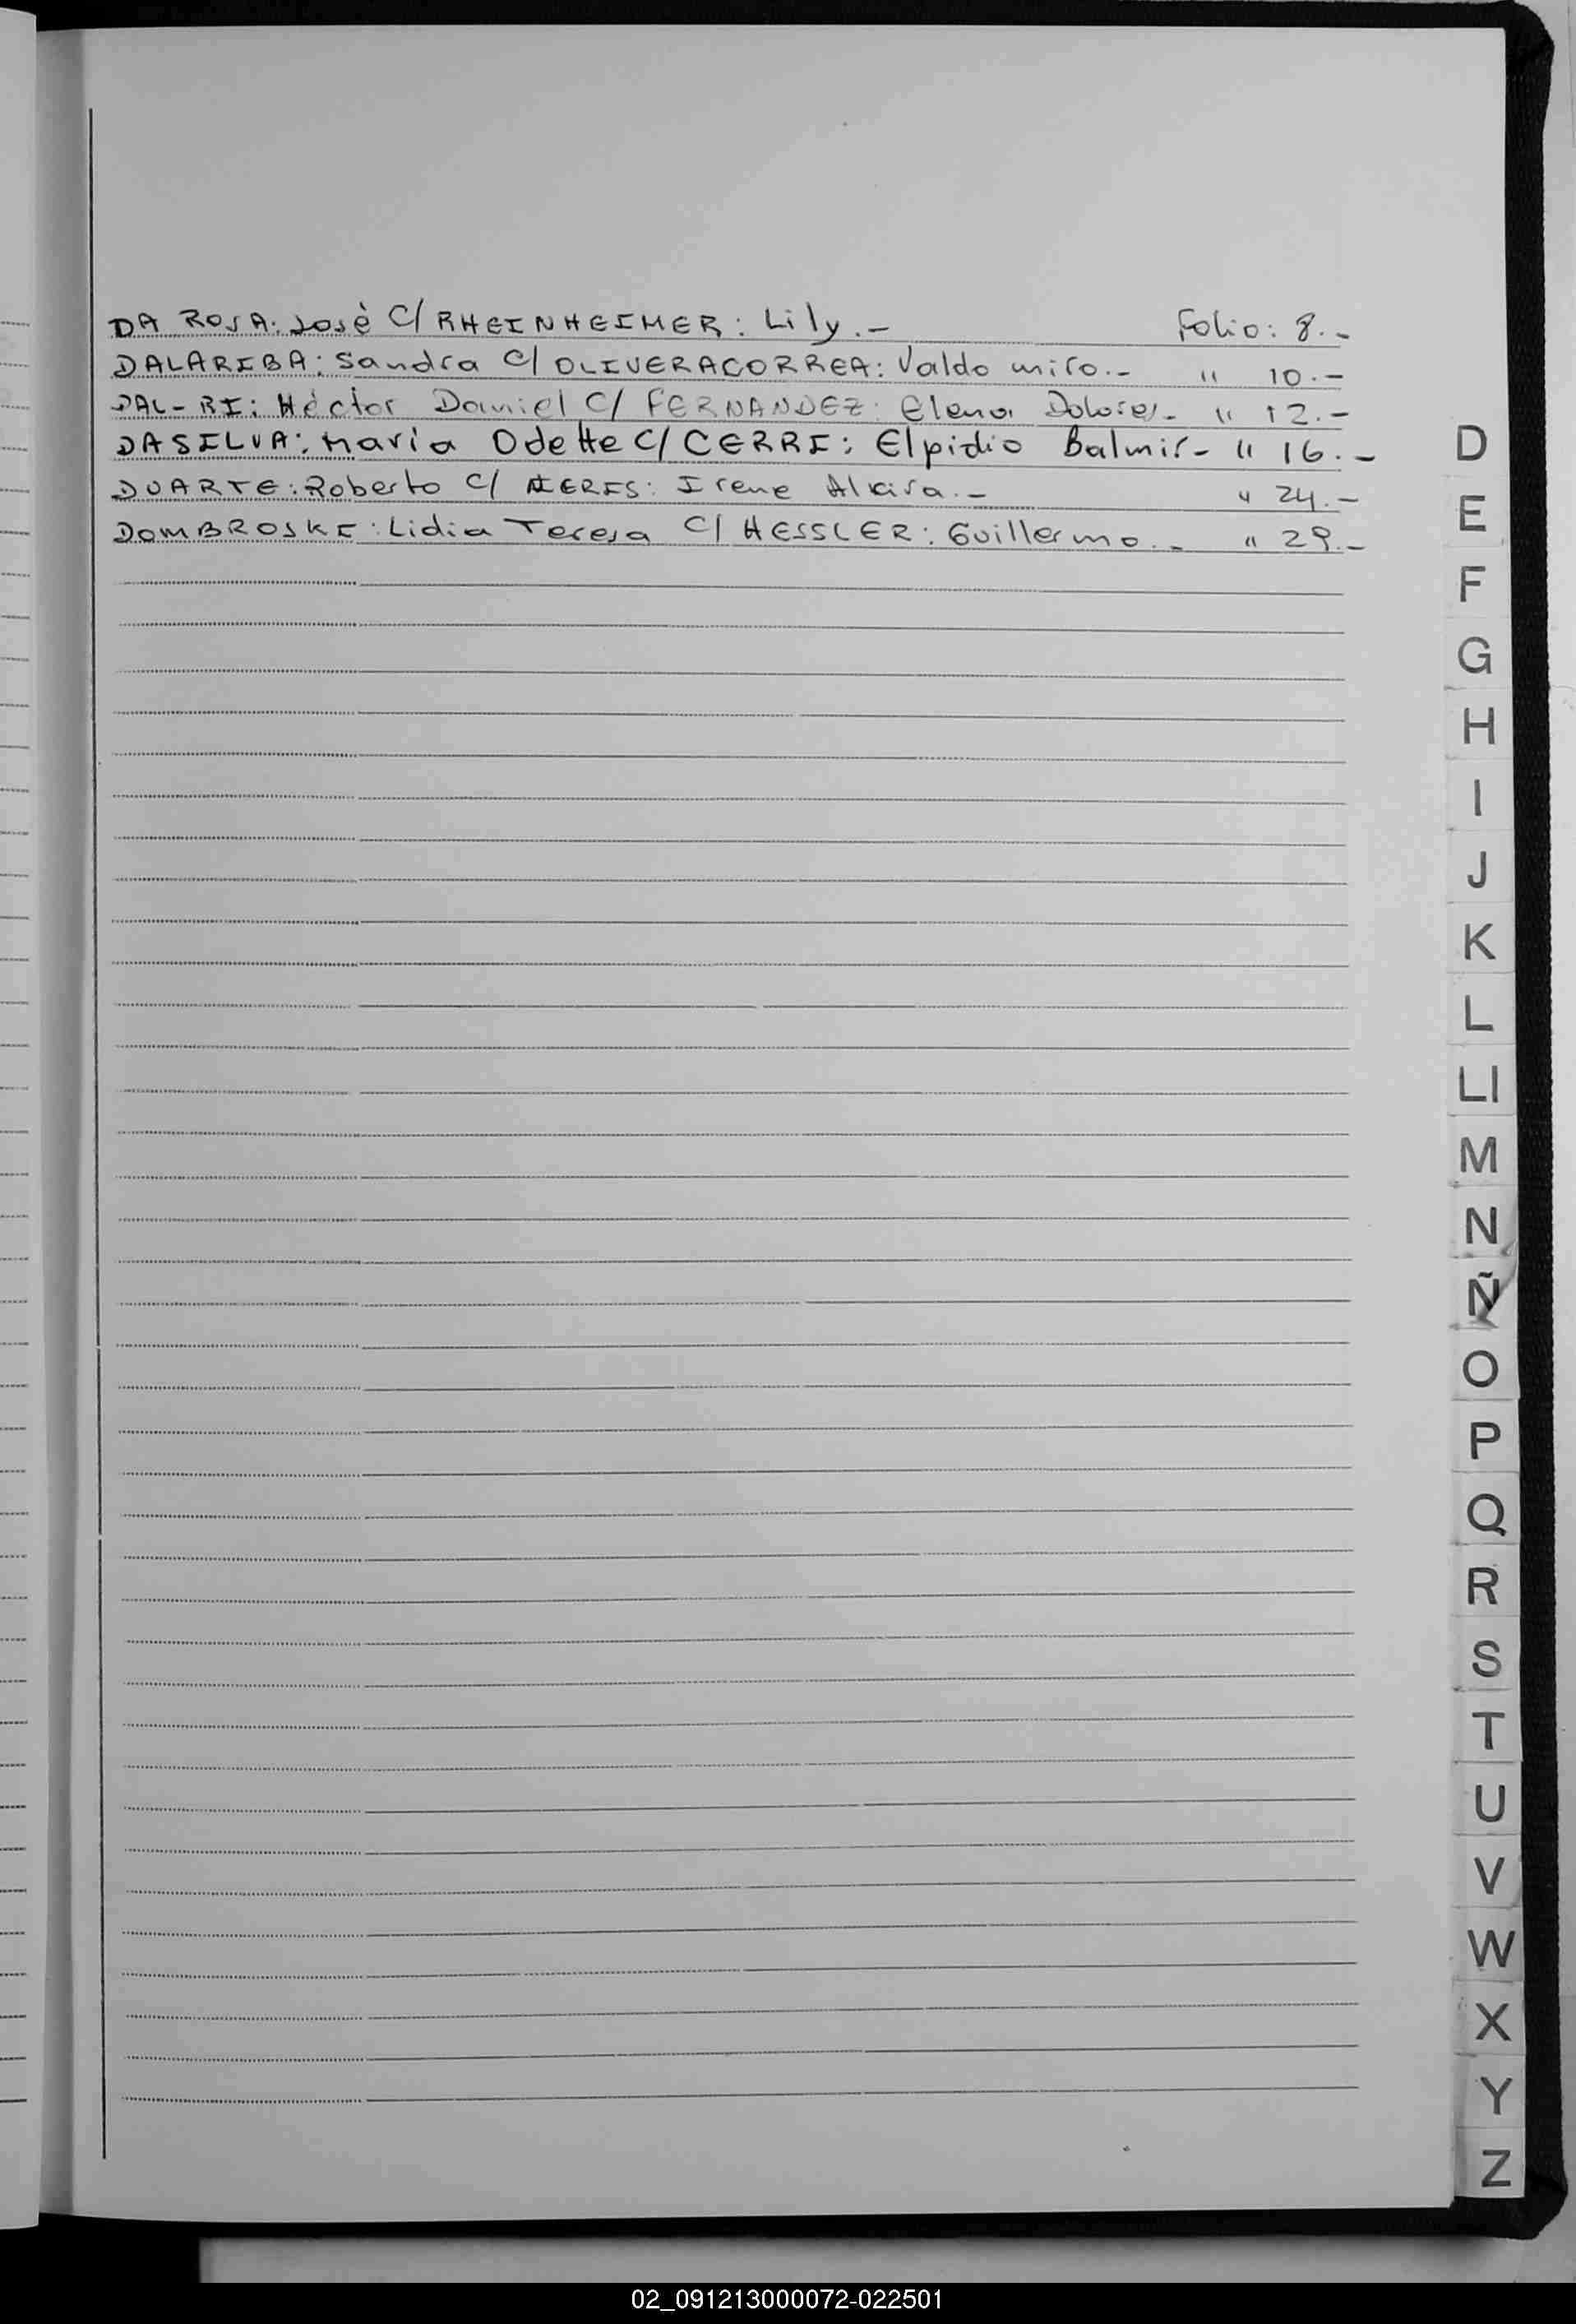 DA ROSA: José C/ RHEINHEIMER: Lily.- Folio: 8.-
DALARIBA: Sandra C/ OLIVERACORREA: Valdo miro.- " 10.-
DAL-RI: Héctor Daniel C/ FERNANDEZ: Elena Dolores- " 12.-
DASILVA: Maria Odette C/ CERRI: Elpidio Balmir- " 16.-
DUARTE: Roberto C/ Irene Alcira.- " 24.-
DOMBROSKI: Lidia Teresa C/ HESSLER: Guillermo.- " 29.-
D
E
F
G
H
I
J
K
L
Ll
M
N
Ñ
O
P
Q
R
S
T
U
V
W
X
Y
Z
02_091213000072-022501